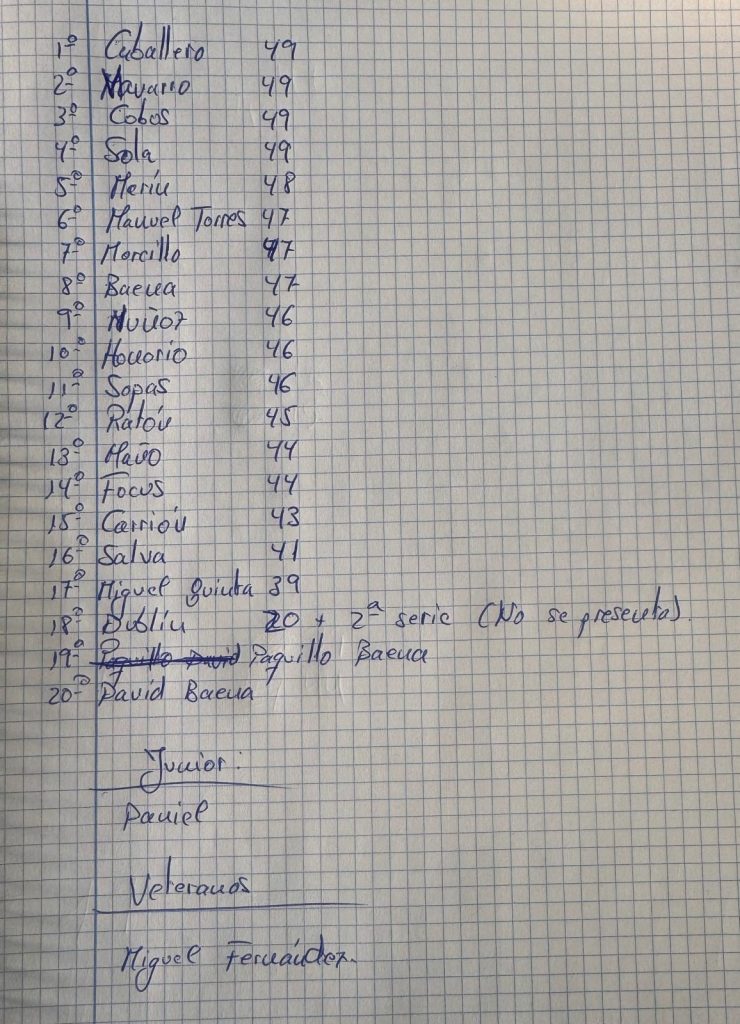 1º Caballero 49
2º Navarro 49
3º Cobos 49
4º Sola 49
5º Merín 48
6º Manuel Torres 47
7º Morcillo 47
8º Baena 47
9º Muñoz 46
10º Honorio 46
11º Sopas 46
12º Ratón 45
13º Maño 44
14º Focus 44
15º Carrión 43
16º Salva 41
17º Miguel Quinta 39
18º Dublín 20 + 2ª serie (No se presenta).
19º Paquillo Baena
20º David Baena
Junior:
Daniel
Veteranos
Miguel Fernández.